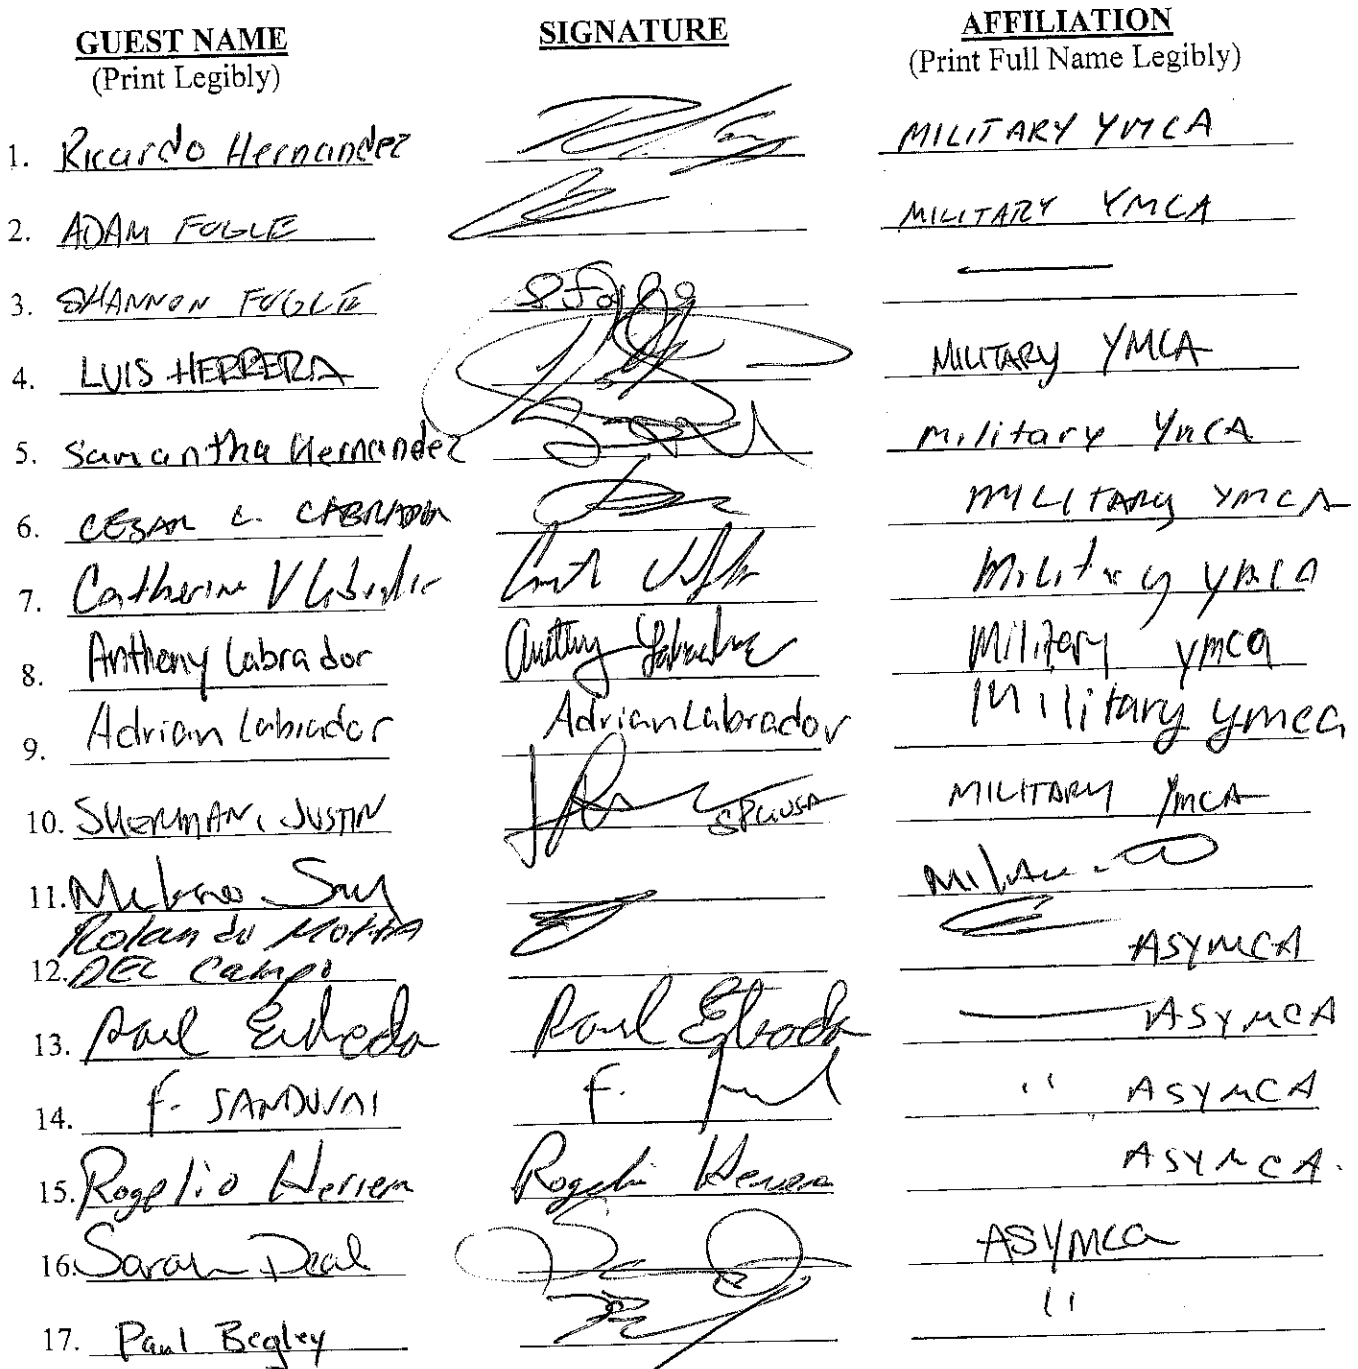 GUEST NAME SIGNATURE AFFILIATION
(Print Legibly) (Print Full Name Legibly)
1. Ricardo Hernandez MILITARY YMCA
2. ADAM FOGLE MILITARY YMCA
3. SHANNON FOGLE S. Fogle
4. LUIS HERRERA MILITARY YMCA
5. Samantha Hernandez Military YMCA
6. CESAR L. MILITARY YMCA
7. Catherine V Military YMCA
8. Anthony Labrador Anthony Labrador Military ymca
9. Adrian Labrador Adrian Labrador Military ymca
10. SHERMAN, JUSTIN MILITARY YMCA
11.
Rolando Motta
12. DEL Campo ASYMCA
13. ASYMCA
14. F. SANDOVAl F. '' ASYMCA
15. Rogelio Herrera Rogelio Herrera ASYMCA.
16. Sarah Deal ASYMCA
17. Paul Begley ''